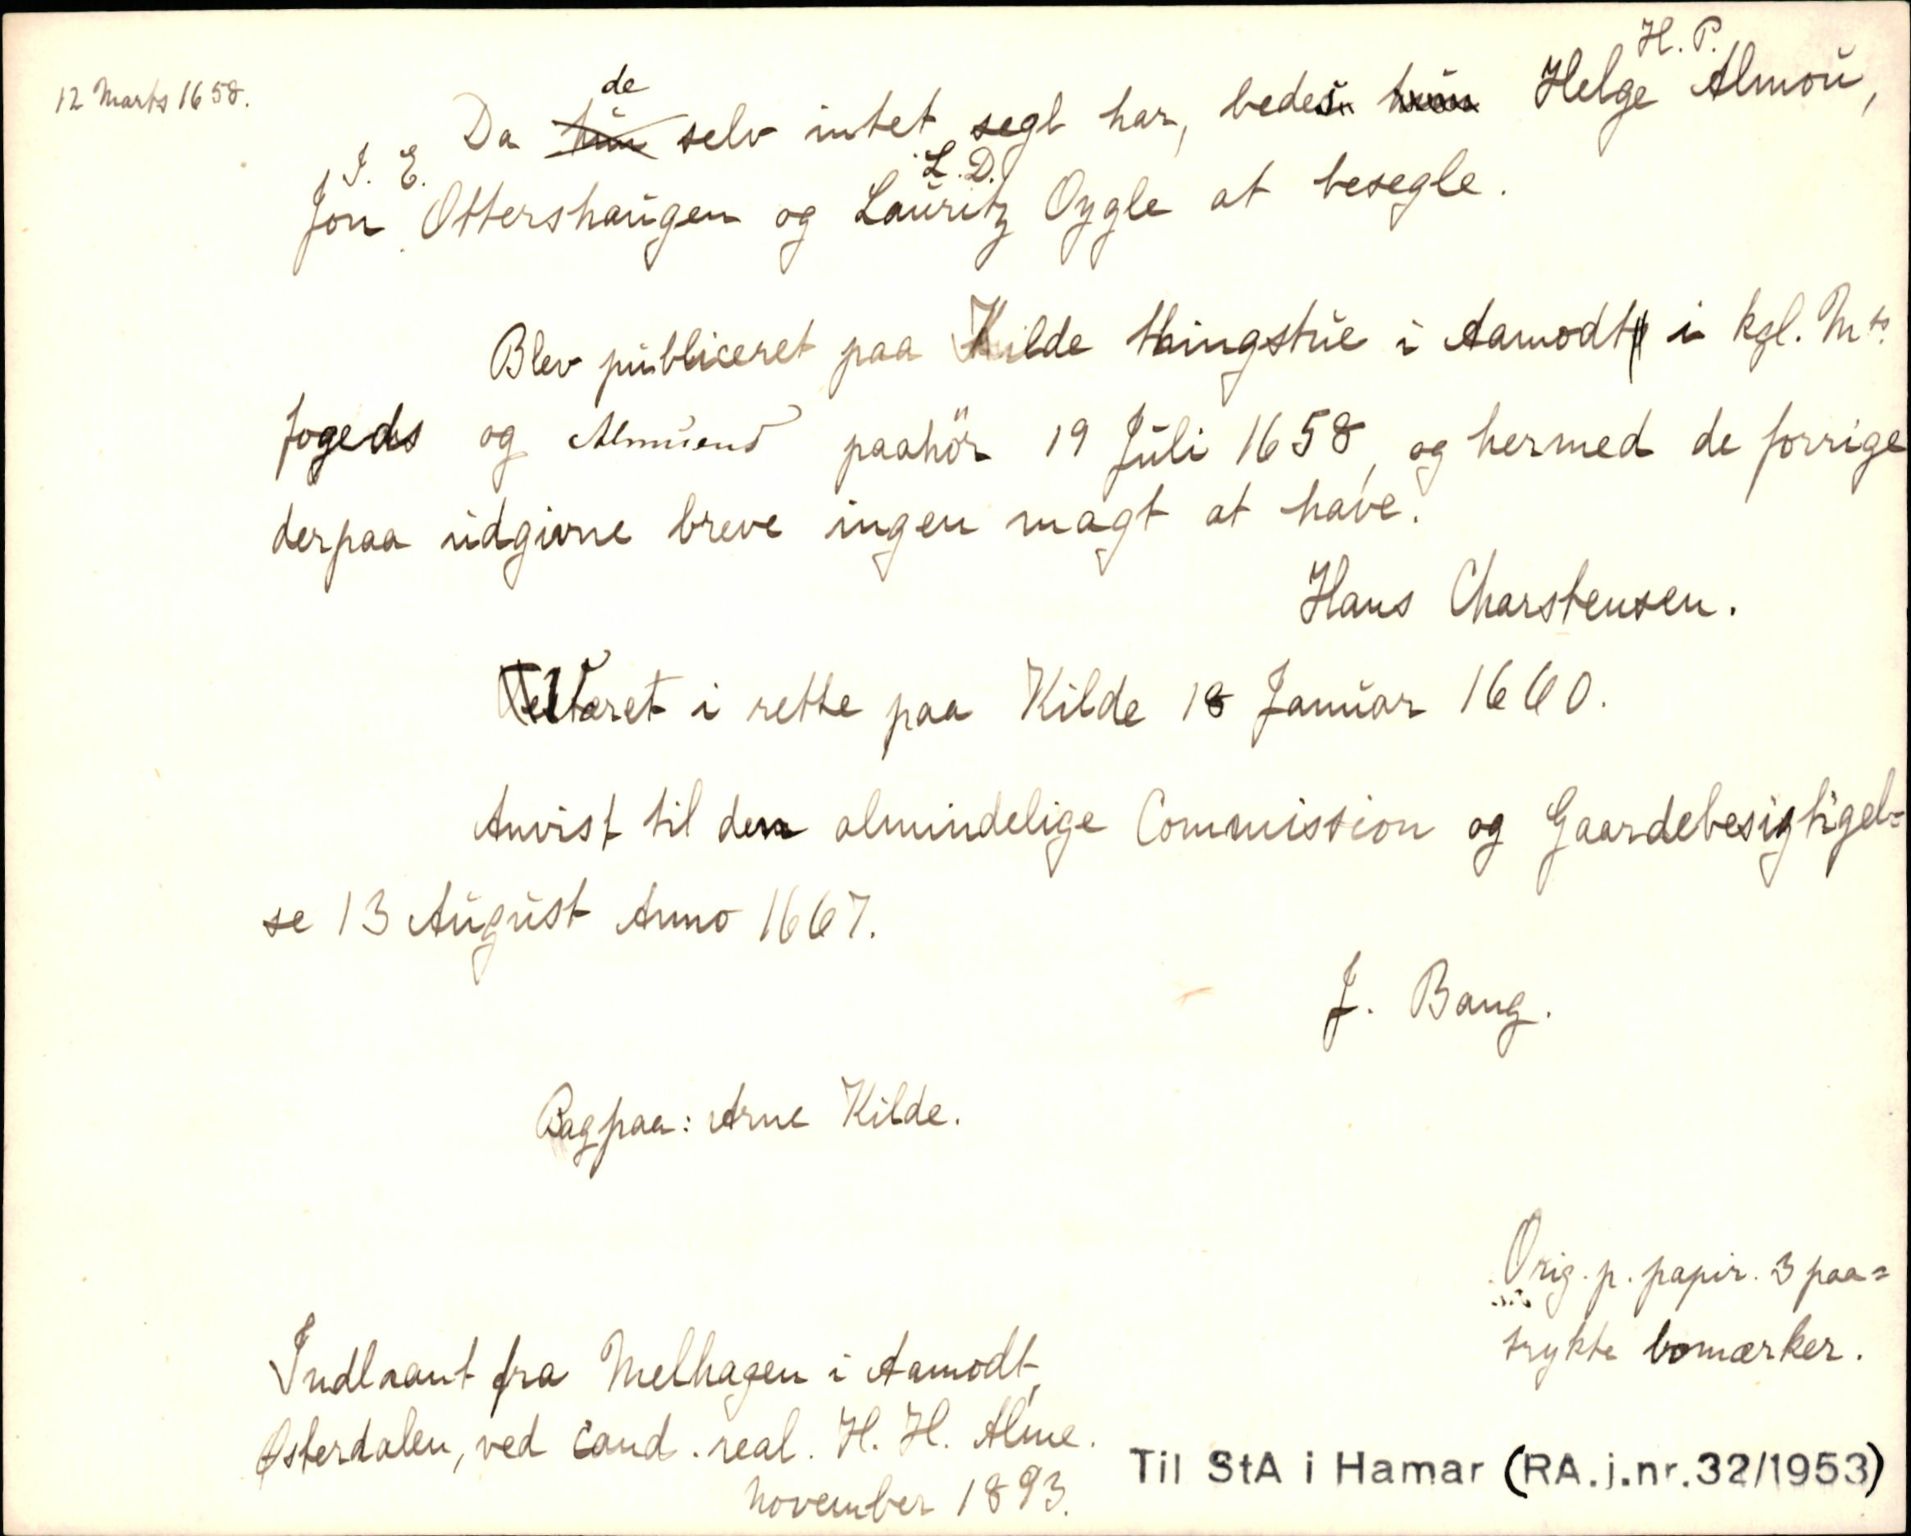 12 Marts 1658.
H. P.
de
Da hun selv intet segl har, bedes hun Helge Almou,
J. E. L. D.
Jon Ottershaugen og Lauritz Oygle at besegle.
Blev publiceret paa Kilde thingstue i Aamodt i kgl. Mts.
fogeds og Almuens paahör 19 Juli 1658, og hermed de forrige
derpaa udgivne breve ingen magt at have.
Hans Charstensen.
Været i rette paa Kilde 18 Januar 1660.
Anvist til den almindelige Commission og Gaardebesigtigel=
se 13 August Anno 1667.
J. Bang.
Bagpaa: Arne Kilde.
Orig. p. papir. 3 paa=
trykte bomærker.
Indlaant fra Melhagen i Aamodt,
Østerdalen, ved cand. real. H. H. Alme.
November 1893.
Til StA i Hamar (RA.j.nr.32/1953)